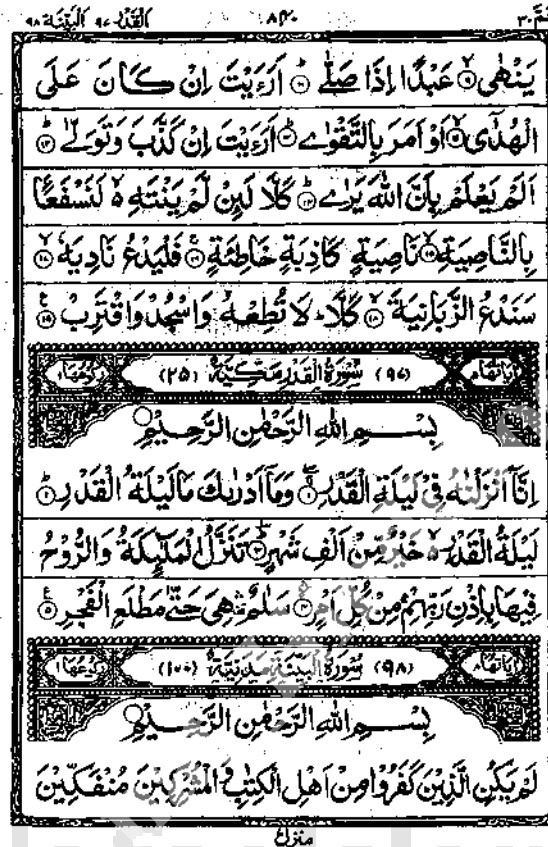 عمّ ٣٠ القدر ٩٧ البينة ٩٨
يَنْهٰى ۙ۹ عَبْدًا اِذَا صَلّٰى ؕ۱۰ اَرَءَيْتَ اِنْ كَانَ عَلَى
الْهُدٰٓى ۙ۱۱ اَوْ اَمَرَ بِالتَّقْوٰى ؕ۱۲ اَرَءَيْتَ اِنْ كَذَّبَ وَتَوَلّٰى ؕ۱۳
اَلَمْ يَعْلَمْ بِاَنَّ اللّٰهَ يَرٰى ؕ۱۴ كَلَّا لَئِنْ لَّمْ يَنْتَهِ ۙ۬ لَنَسْفَعًۢا
بِالنَّاصِيَةِ ۙ۱۵ نَاصِيَةٍ كَاذِبَةٍ خَاطِئَةٍ ۚ۱۶ فَلْيَدْعُ نَادِيَهٗ ۙ۱۷
سَنَدْعُ الزَّبَانِيَةَ ۙ۱۸ كَلَّا ؕ لَا تُطِعْهُ وَاسْجُدْ وَاقْتَرِبْ ۱۹
اٰيَاتُهَا ٥ (٩٧) سُوْرَةُ الْقَدْرِ مَكِّيَّةٌ (٢٥) رُكُوْعُهَا ١
بِسْمِ اللّٰهِ الرَّحْمٰنِ الرَّحِيْمِ
اِنَّآ اَنْزَلْنٰهُ فِيْ لَيْلَةِ الْقَدْرِ ۚۖ۱ وَمَآ اَدْرٰىكَ مَا لَيْلَةُ الْقَدْرِ ؕ۲
لَيْلَةُ الْقَدْرِ ۙ۬ خَيْرٌ مِّنْ اَلْفِ شَهْرٍ ؕ۳ تَنَزَّلُ الْمَلٰٓئِكَةُ وَالرُّوْحُ
فِيْهَا بِاِذْنِ رَبِّهِمْ مِنْ كُلِّ اَمْرٍ ۙۛ۴ سَلٰمٌ ۛ هِيَ حَتّٰى مَطْلَعِ الْفَجْرِ ۵
اٰيَاتُهَا ٨ (٩٨) سُوْرَةُ الْبَيِّنَةِ مَدَنِيَّةٌ (١٠٠) رُكُوْعُهَا ١
بِسْمِ اللّٰهِ الرَّحْمٰنِ الرَّحِيْمِ
لَمْ يَكُنِ الَّذِيْنَ كَفَرُوْا مِنْ اَهْلِ الْكِتٰبِ وَالْمُشْرِكِيْنَ مُنْفَكِّيْنَ
منزل